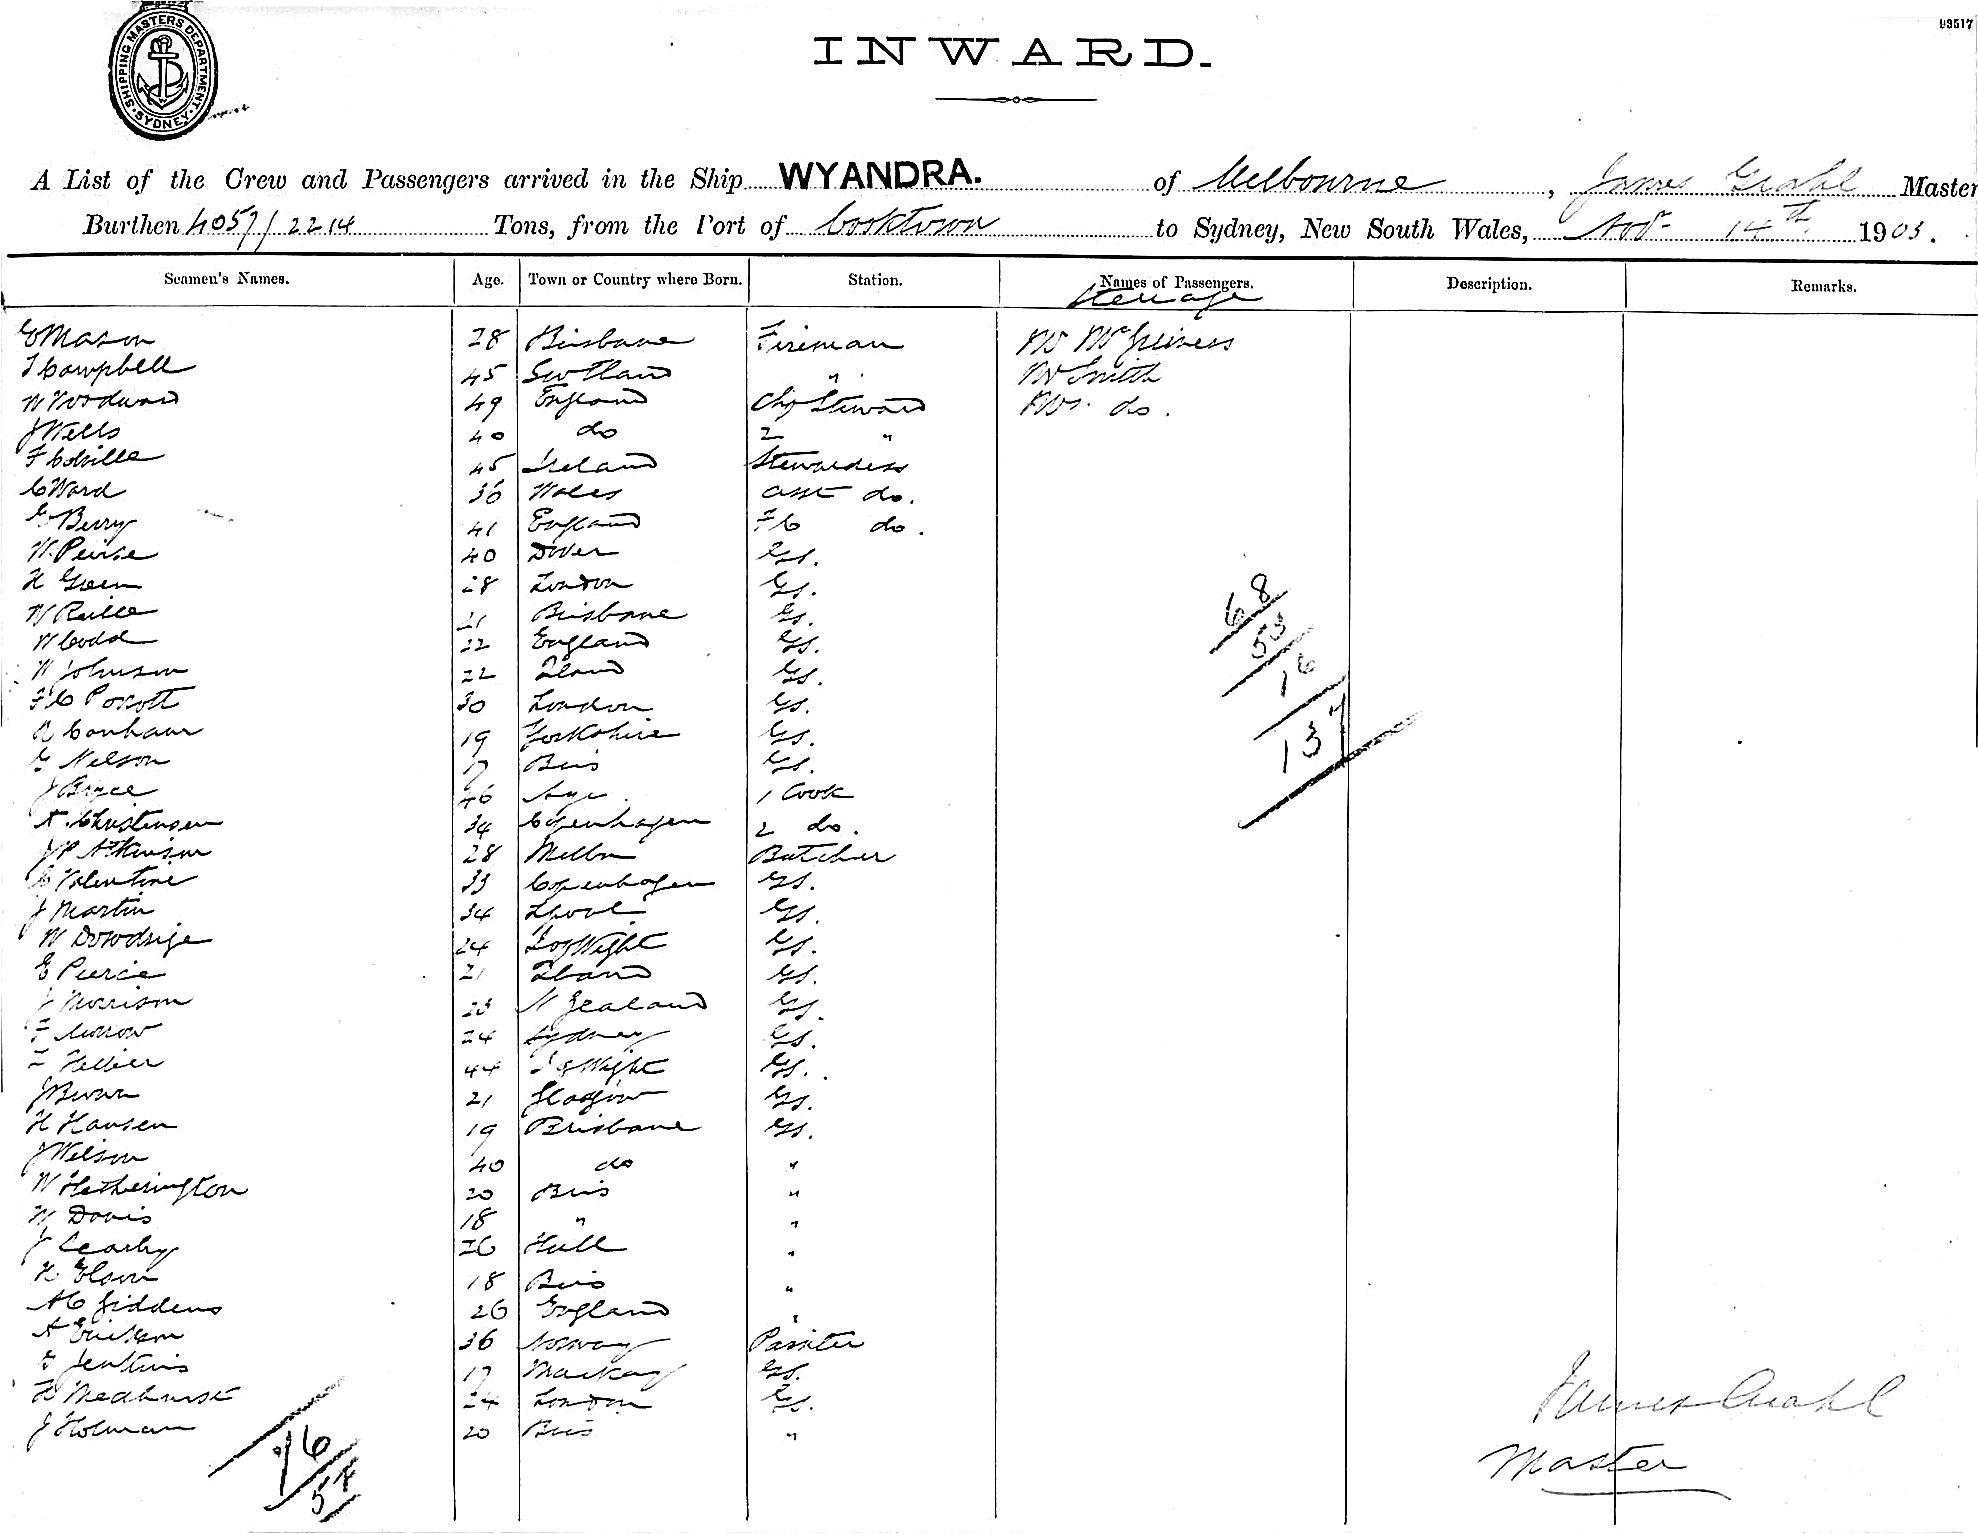 SHIPPING MASTERS DEPARTMENT. SYDNEY
93517
INWARD.
A List of the Crew and Passengers arrived in the Ship WYANDRA. of Melbourne, James Grahl Master
Burthen 4057/2214 Tons, from the Port of Cooktown to Sydney, New South Wales, Nov 14th 1903.
Seamen's Names. Age. Town or Country where Born. Station. Names of Passengers. Description. Remarks.
Steerage
E Mason 28 Brisbane Fireman Mr McGuiness
T Campbell 45 Scotland " Mr Smith
W Woodward 49 England Chf Steward Mrs. do.
J Wells 40 do 2 "
F Colville 45 Ireland Stewardess
C Ward 36 Wales asst do.
G Berry 41 England F C do.
W. Peirse 40 Dover GS.
H Green 28 London GS.
W 21 Brisbane GS.
W Codd 22 England GS.
W Johnson 22 GS.
F C Pocott 30 London GS.
A Conhaur 19 Yorkshire GS.
G Nelson 17 Bris GS.
J Bryce 46 Ayr. 1 Cook
A. Christensen 34 Copenhagen 2 do.
J P Atkinson 28 Melbn Butcher
C Valentine 33 Copenhagen GS.
J Martin 34 Lpool GS.
W Dowdrige 24 I of Wight GS.
E Pierce 21 GS.
J Morrison 23 N Zealand GS.
F Morrow 24 Sydney GS.
F Hellier 44 I of Wight GS.
J Bevan 21 Glasgow GS.
H Hansen 19 Brisbane GS.
J Wilson 40 do "
W Hetherington 20 Bris "
W Davis 18 " "
J Cearby 26 Hull "
H Olson 18 Bris "
A C Giddens 26 England "
A Erickson 36 Norway Painter
G Jenkins 17 Mackay GS.
H Medhurst 24 London GS.
J Holman 20 Bris "
68
53
16
137
16
54
James Grahl
Master